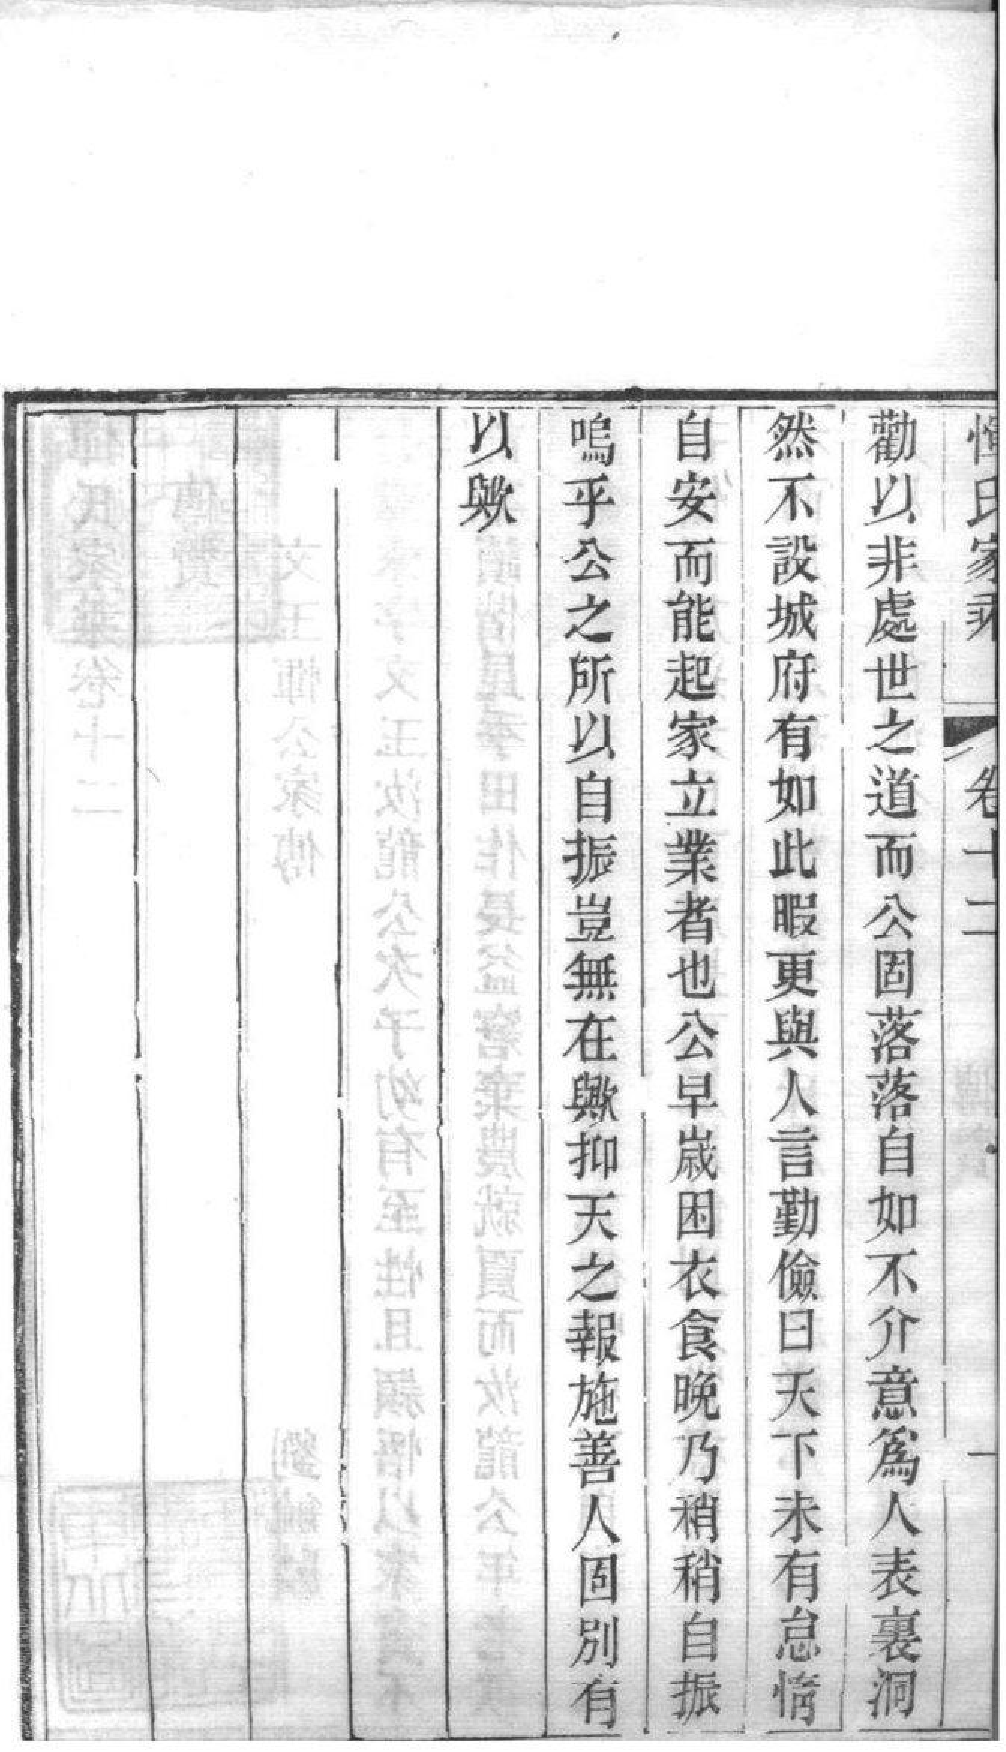 惲氏家乘 卷十二 一
勸以非處世之道而公固落落自如不介意爲人表裏洞
然不設城府有如此暇更與人言勤儉曰天下未有怠惰
自安而能起家立業者也公早歲困衣食晚乃稍稍自振
嗚乎公之所以自振豈無在歟抑天之報施善人固別有
以歟